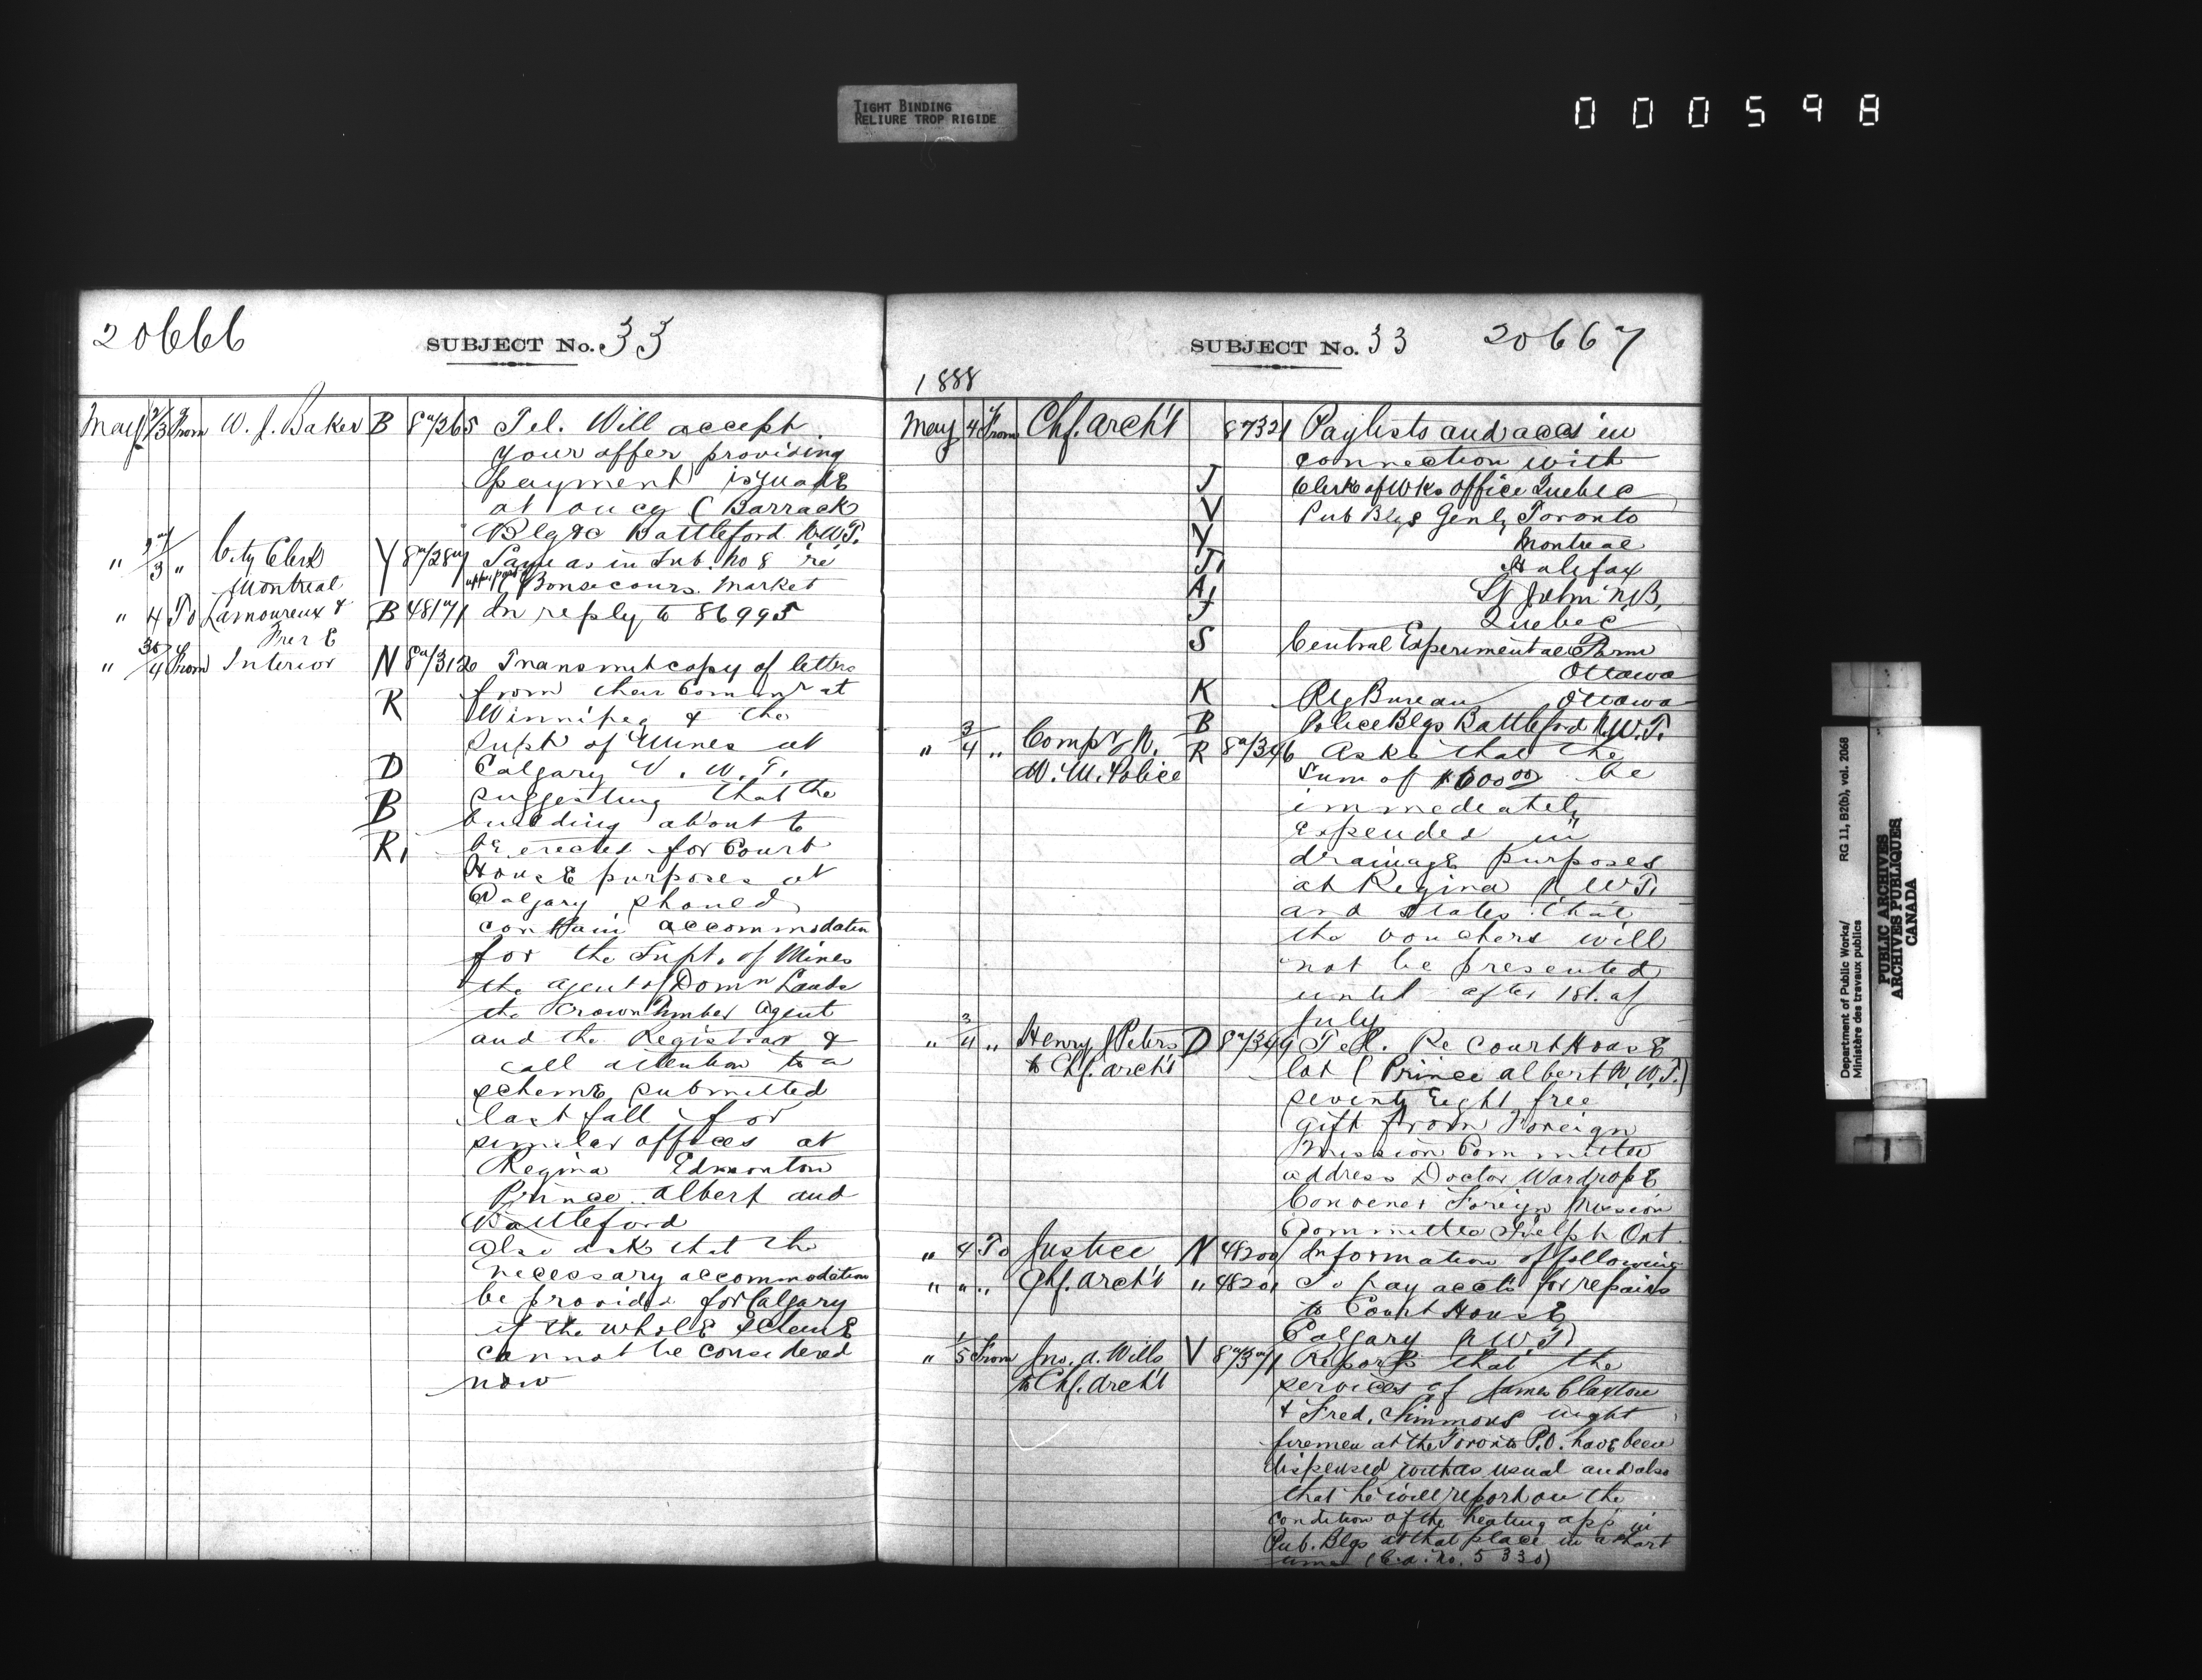 TIGHT BINDING
RELIURE TROP RIGIDE
000598
20666
SUBJECT No. 33
May 2/3 From W. J. Baker B 87265 Tel. Will accept
your offer providing
payment is made
at once (Barrack
Blgs &c Battleford N.W.T.
" 3 " City Clerk Y 87287 Same as in Sub. No 8 re
Montreal Bonsecours Market
" 4 To Lamoureux & B 48171 In reply to 86995
Frere
" 30/4 From Interior N 87312 Transmit copy of letters
R from their Commr at
Winnipeg & the
Supt of Mines at
D Calgary N.W.T.
B suggesting that the
building about to
R, be erected for Court
House purposes at
Calgary should
contain accommodation
for the Supt. of Mines
the agent of Domn Lands
the Crown Timber Agent
and the Registrar &
call attention to a
scheme submitted
last fall for
similar offices at
Regina Edmonton
Prince Albert and
Battleford
Also ask that the
necessary accommodation
be provided for Calgary
if the whole scheme
cannot be considered
now
SUBJECT No. 33 20667
1888
May 4 From Chf. Arch't 87321 Paylists and accs in
connection with
J Clerk of Wks Office Quebec
V Pub Blgs Genly Toronto
Y Montreal
J, Halifax
A, St John N.B,
J Quebec
S Central Experimental Farm
Ottawa
K Rly Bureau Ottawa
B Police Blgs Battleford N.W.T.
" 3/4 " Compr N. R 87346 Asks that the
W. M. Police sum of $600.00 be
immediately
expended in
drainage purposes
at Regina N.W.T.
and states that
the vouchers will
not be presented
until after 1st. of
July
" 3/4 " Henry J Peters D 87349 Tel. Re Court House
to Chf. Arch't lot (Prince Albert N.W.T.)
seventy eight free
gift from Foreign
Mission Committee
address Doctor Wardrope
Convener Foreign Mission
Committee Guelph Ont.
" 4 To Justice N 48200 Information of following
" " " Chf. Arch't " 48201 To pay accts for repairs
to Court House
Calgary N.W.T.
" 1/5 From Jno. A. Wills V 87371 Reports that the
to Chf. Arch't services of James Claxton
& Fred. Simmons night
firemen at the Toronto P.O. have been
dispensed with as usual and also
that he will report on the
condition of the heating app in
Pub. Blgs at that place in a short
time (C.A. No. 5330)
Department of Public Works/
Ministère des travaux publics
RG 11, B2(b), vol. 2068
PUBLIC ARCHIVES
ARCHIVES PUBLIQUES
CANADA